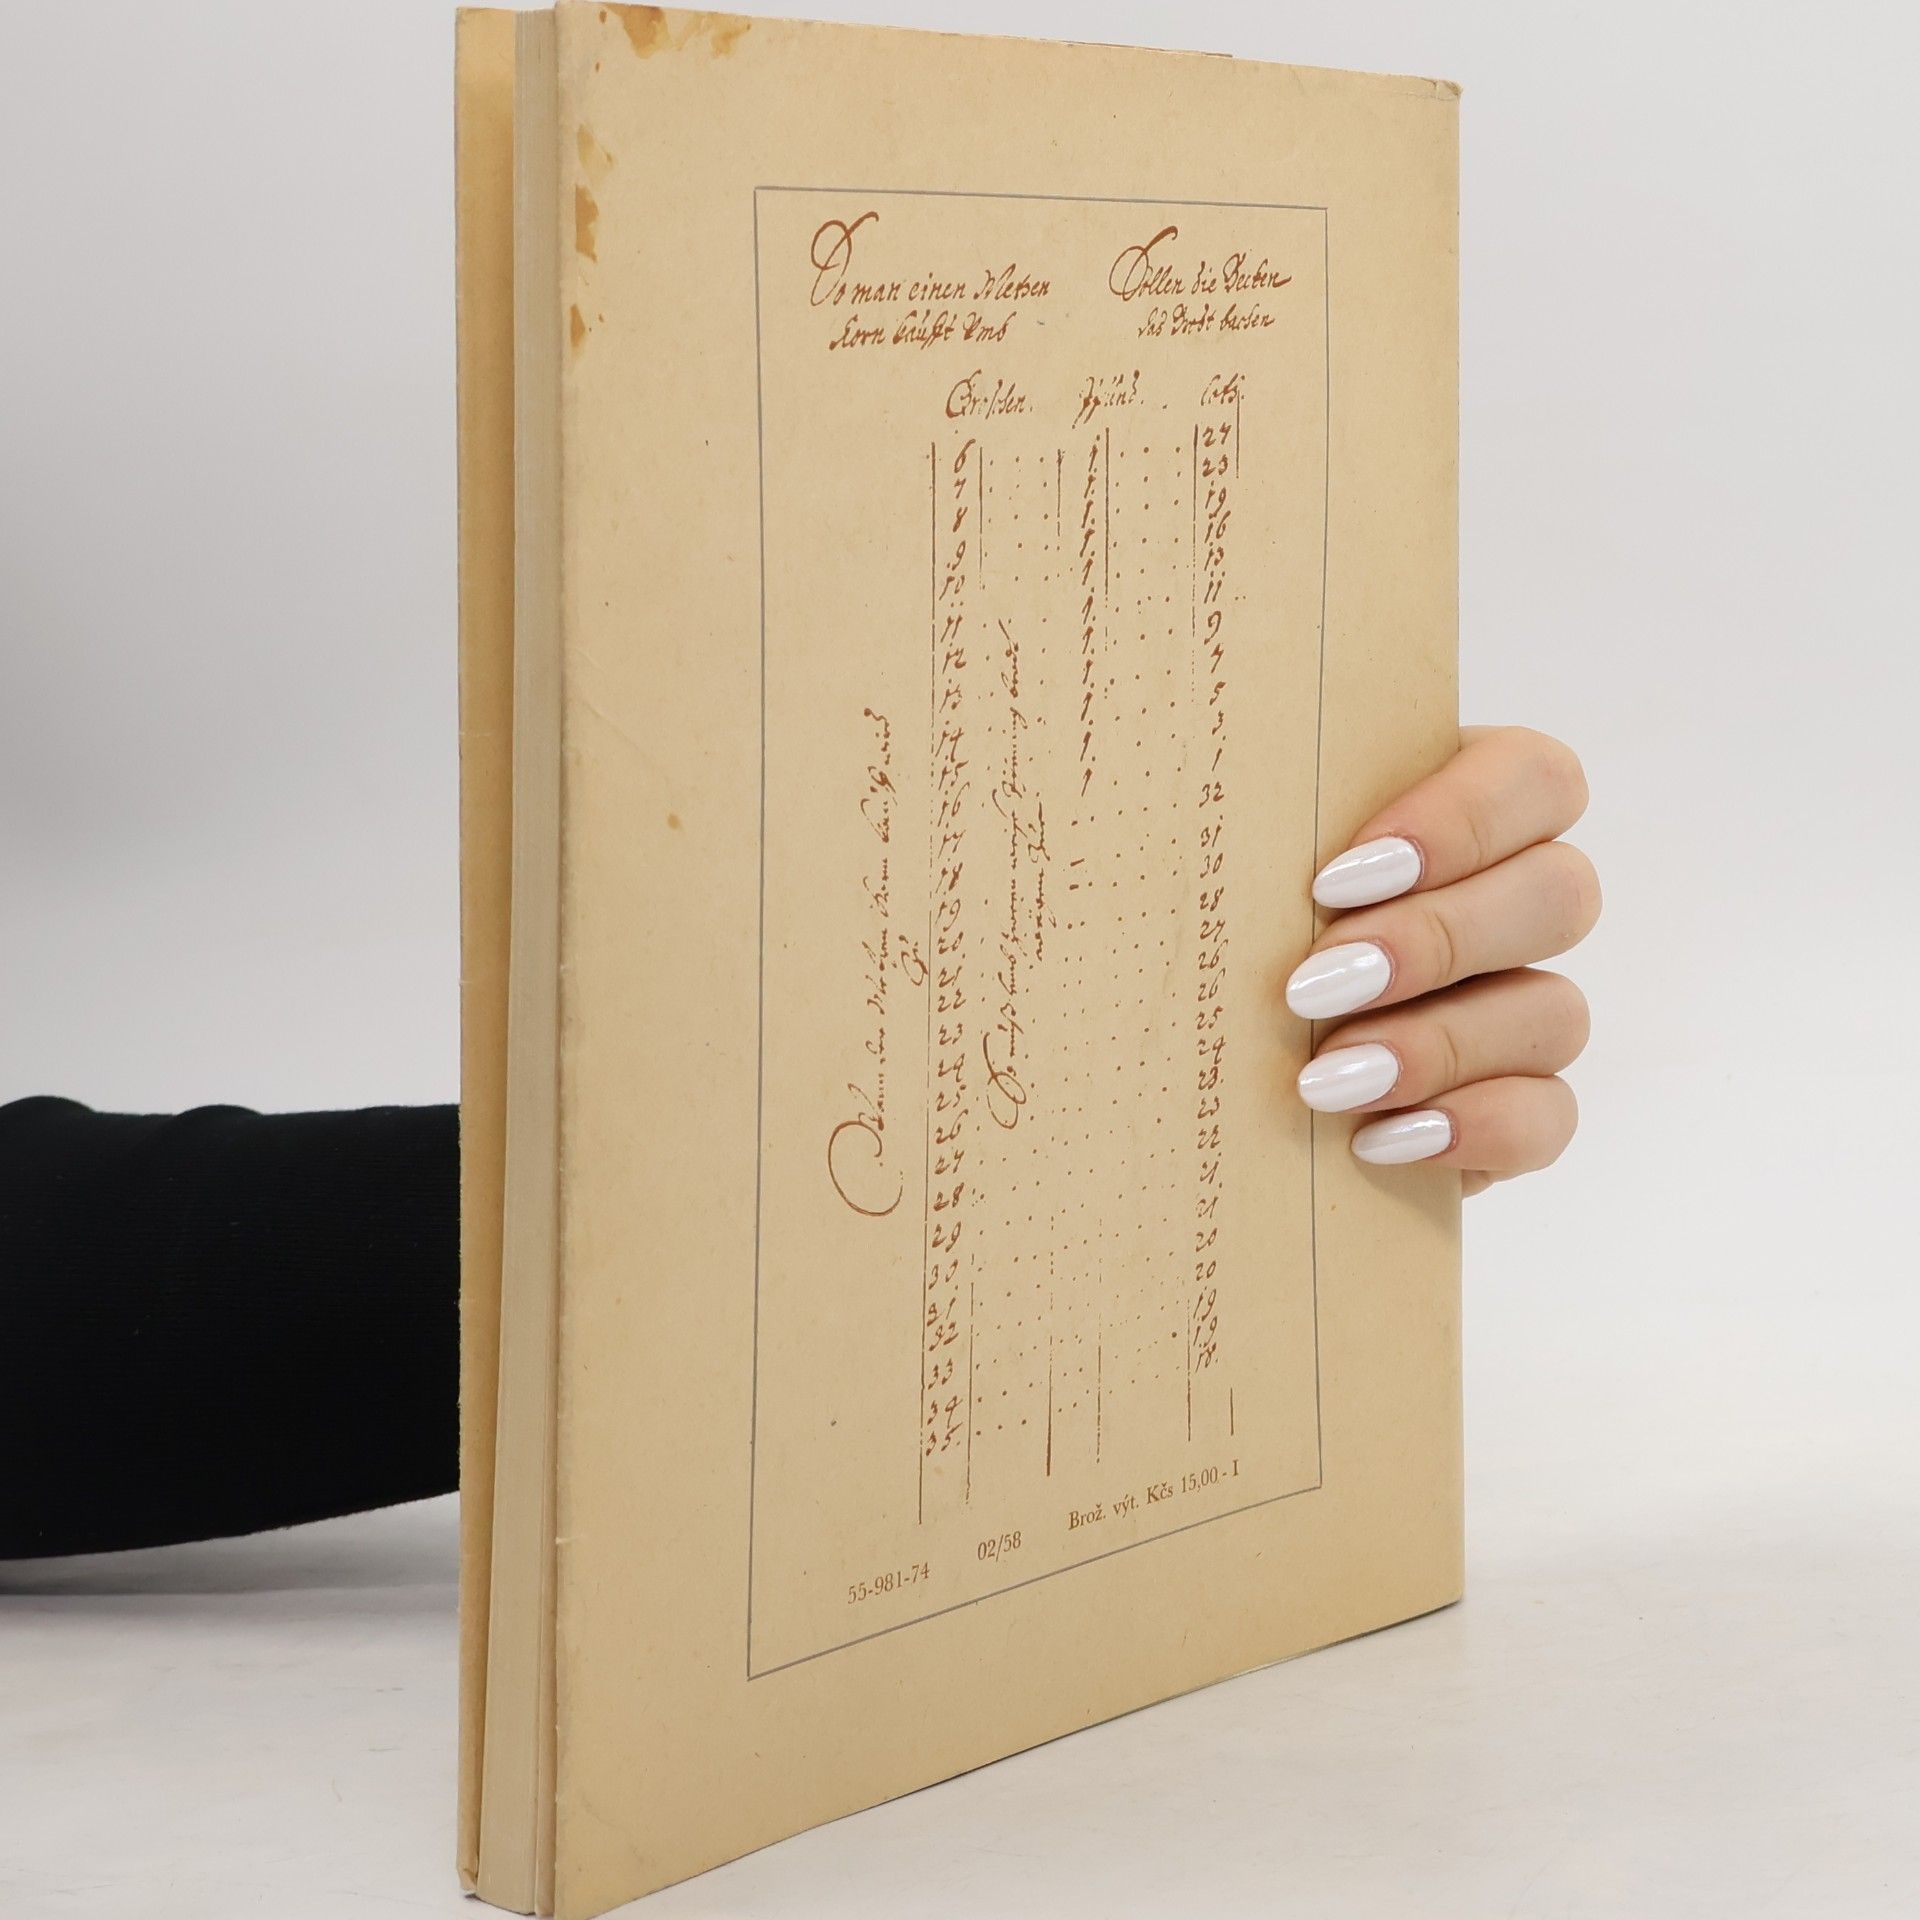 So man einen Metzen
Korn kaufft Umb
Sollen die Becken
das Brodt bachen
Groschen. Pfund. Loth.
6 1 27
7 1. 23
8 1. 19
9 1. 16
10 1 13
11 1. 11
12 1. 9
13 1. 7
14 1. 5
15 1. 3
16 1 1
17 32
18 31
19 30
20 28
21 27
22 26
23 26
24 25
25 24
26 23.
27 23
28 22
29 21.
30 21
31 20
32 20
33 19
34 19
35. 18.
Wann der Metzen Korn kaufft wird
55-981-74 02/58 Brož. výt. Kčs 15,00 - I